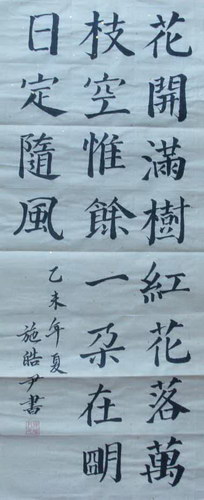 花開滿樹紅花落萬
枝空惟餘一朶在明
日定隨風
乙未年夏
施皓尹書